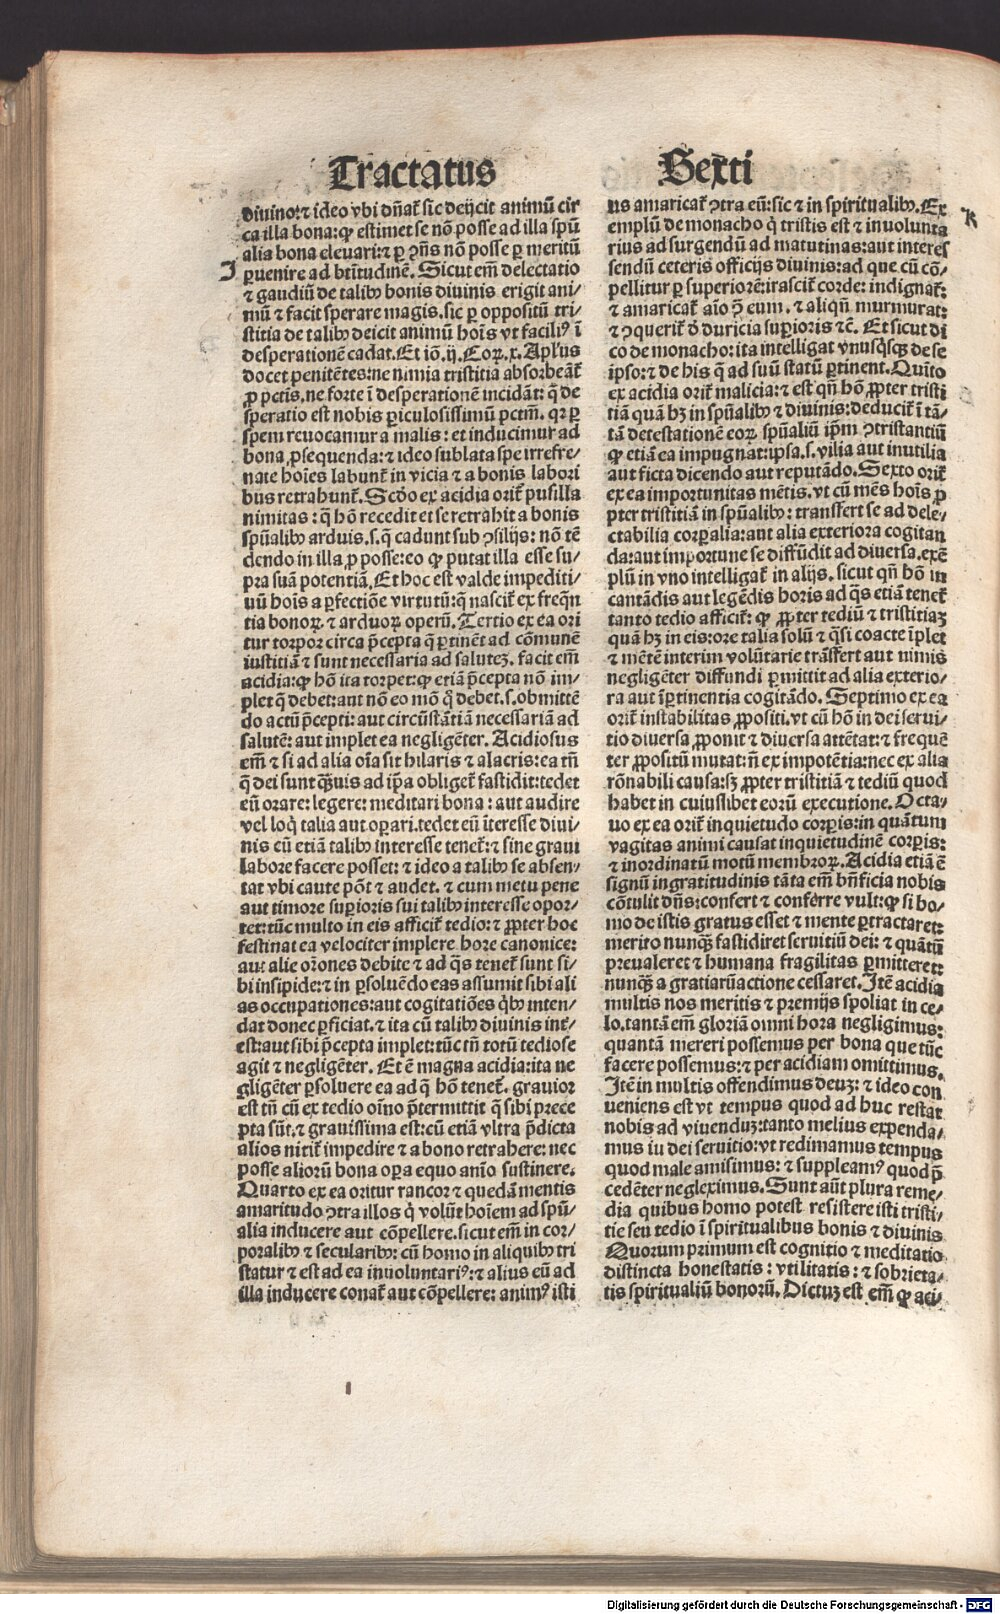 Tractatus Sexti
diuino:⁊ ideo vbi dñat᷑ sic deijcit animũ cir
ca illa bona:ꝙ estimet se nõ posse ad illa spũ
alia bona eleuari:⁊ ꝑ ↄ̃ñs nõ posse ꝑ meritũ
I
ꝑuenire ad bt̃itudinẽ. Sicut em̃ delectatio
⁊ gaudiũ de talibꝰ bonis diuinis erigit ani⸗
mũ ⁊ facit sperare magis. sic ꝑ oppositũ tri⸗
stitia de talibꝰ deicit animũ hoĩs vt faciliꝰ ĩ
desperationẽ cadat. Et iõ .ij. Coꝝ. x. Apl'us
docet penitẽtes: ne nimia tristitia absorbeãt᷑
ꝓ pctis. ne forte ĩ desperationẽ incidãt: q̃ de
speratio est nobis ꝑiculosissimũ pctm̃. qꝛ ꝑ
spem reuocamur a malis: et inducimur ad
bona ꝓsequenda: ⁊ ideo sublata spe irrefre⸗
nate hoĩes labunt᷑ in vicia ⁊ a bonis labori
bus retrahunt᷑. Scd̃o ex acidia orit᷑ pusilla
nimitas: q̃ hõ recedit et se retrahit a bonis
spũalibꝰ arduis .s. q̃ cadunt sub ↄsilijs: nõ tẽ
dendo in illa ꝓ posse: eo ꝙ putat illa esse su⸗
pra suã potentiã. Et hoc est valde impediti⸗
uũ hoĩs a ꝑfectiõe virtutũ: q̃ nascit᷑ ex freq̃n
tia bonoꝝ ⁊ arduoꝝ operũ. Tertio ex ea ori
tur torpor circa p̃cepta q̃ ꝑtinẽt ad cõmunẽ
iustitiã ⁊ sunt necessaria ad salutez. facit em̃
acidia: ꝙ hõ ita torpet: ꝙ etiã p̃cepta nõ im⸗
plet q̃ debet: aut nõ eo mõ q̃ debet .s. obmittẽ
do actũ p̃cepti: aut circũstãtiã necessariã ad
salutẽ: aut implet ea negligẽter. Acidiosus
em̃ ⁊ si ad alia oĩa sit hilaris ⁊ alacris: ea tñ
q̃ dei sunt q̃ꝫuis ad ip̃a obliget᷑ fastidit: tedet
eũ orare: legere: meditari bona: aut audire
vel loq̃ talia aut oꝑari. tedet eũ ĩteresse diui⸗
nis eũ etiã talibꝰ interesse tenet᷑: ⁊ sine graui
labore facere posset: ⁊ ideo a talibꝰ se absen⸗
tat vbi caute põt ⁊ audet. ⁊ cum metu pene
aut timore suꝑioris sui talibꝰ interesse opor⸗
tet: tũc multo in eis afficit᷑ tedio: ⁊ ꝓpter hoc
festinat ea velociter implere hore canonice:
aut alie or̃ones debite ⁊ ad q̃s tenet᷑ sunt si⸗
bi insipide: ⁊ in ꝑsoluẽdo eas assumit sibi ali
as occupationes: aut cogitatiões q̃bꝰ inten⸗
dat donec ꝑficiat. ⁊ ita cũ talibꝰ diuinis int̃⸗
est: aut sibi p̃cepta implet: tũc tñ totũ tediose
agit ⁊ negligẽter. Et ẽ magna acidia: ita ne
gligẽter ꝑsoluere ea ad q̃ hõ tenet᷑. grauior
est tñ cũ ex tedio oĩno p̃termittit q̃ sibi prece
pta sũt. ⁊ grauissima est: cũ etiã vltra p̃dicta
alios nitit᷑ impedire ⁊ a bono retrahere: nec
posse aliorũ bona oꝑa equo anĩo sustinere.
Quarto ex ea oritur rancor ⁊ quedã mentis
amaritudo ↄtra illos q̃ volũt hoĩem ad spũ⸗
alia inducere aut cõpellere. sicut em̃ in cor⸗
poralibꝰ ⁊ secularibꝰ: cũ homo in aliquibꝰ tri
statur ⁊ est ad ea inuoluntariꝰ: ⁊ alius eũ ad
illa inducere conat᷑ aut cõpellere: animꝰ isti
us amaricat᷑ ↄtra eũ: sic ⁊ in spiritualibꝰ. Ex
K
emplũ de monacho q̃ tristis est ⁊ inuolunta
rius ad surgendũ ad matutinas: aut interes
sendũ ceteris officijs diuinis: ad que cũ cõ⸗
pellitur ꝑ superiorẽ: irascit᷑ corde: indignat᷑:
⁊ amaricat᷑ aĩo ↄ̃ eum. ⁊ aliqñ murmurat:
⁊ ↄquerit᷑ d̃ duricia suꝑioris ⁊c̃. Et sicut di
co de monacho: ita intelligat vnusq̃sqꝫ de se
ipso: ⁊ de his q̃ ad suũ statũ ꝑtinent. Quĩto
ex acidia orit᷑ malicia: ⁊ est qñ hõ ꝓpter tristi
tiã quã hꝫ in spũalibꝰ ⁊ diuinis: deducit᷑ ĩ tã⸗
tã detestationẽ eoꝝ spũaliũ ip̃m ↄtristantiũ
ꝙ etiã ea impugnat: ipsa .s. vilia aut inutilia
aut ficta dicendo aut reputãdo. Sexto orit᷑
ex ea importunitas mẽtis. vt cũ mẽs hoĩs ꝓ
pter tristitiã in spũalibꝰ: transfert se ad dele⸗
ctabilia corꝑalia: aut alia exteriora cogitan
da: aut importune se diffũdit ad diuersa. exẽ
plũ in vno intelligat᷑ in alijs. sicut qñ hõ in
cantãdis aut legẽdis horis ad q̃s etiã tenet᷑
tanto tedio afficit᷑: ꝙ ꝓpter tediũ ⁊ tristitiaꝫ
quã hꝫ in eis: ore talia solũ ⁊ q̃si coacte ĩplet
⁊ mẽtẽ interim volũtarie trãsfert aut nimis
negligẽter diffundi ꝑmittit ad alia exterio⸗
ra aut ĩꝑtinentia cogitãdo. Septimo ex ea
orit᷑ instabilitas ꝓpositi. vt cũ hõ in dei serui⸗
tio diuersa ꝓponit ⁊ diuersa attẽtat: ⁊ frequẽ
ter ꝓpositũ mutat: nõ ex impotẽtia: nec ex alia
rõnabili causa: sꝫ ꝓpter tristitiã ⁊ tediũ quod
habet in cuiuslibet eorũ executione. Octa⸗
uo ex ea orit᷑ inquietudo corꝑis: in quãtum
vagitas animi causat inquietudinẽ corꝑis:
⁊ inordinatũ motũ membroꝝ. Acidia etiã ẽ
signũ ingratitudinis tãta em̃ bñficia nobis
cõtulit dñs: confert ⁊ conferre vult: ꝙ si ho⸗
mo de istis gratus esset ⁊ mente ꝑtractaret:
merito nunqꝫ̃ fastidiret seruitiũ dei: ⁊ quãtũ
preualeret ⁊ humana fragilitas ꝑmitteret:
nunqꝫ̃ a gratiarũactione cessaret. Itẽ acidia
multis nos meritis ⁊ premijs spoliat in ce⸗
lo. tantã em̃ gloriã omni hora negligimus:
quantã mereri possemus per bona que tũc
facere possemus: ⁊ per acidiam omittimus.
Itẽ in multis offendimus deuꝫ: ⁊ ideo con
ueniens est vt tempus quod ad huc restat
nobis ad viuenduꝫ: tanto melius expenda⸗
mus iu dei seruitio: vt redimamus tempus
quod male amisimus: ⁊ suppleamꝰ quod p̃
cedẽter negleximus. Sunt aũt plura reme⸗
dia quibus homo potest resistere isti tristi⸗
tie seu tedio ĩ spiritualibus bonis ⁊ diuinis
Quorum primum est cognitio ⁊ meditatio
distincta honestatis: vtilitatis: ⁊ sobrieta⸗
tis spiritualiũ bonorũ. Dictuꝫ est em̃ ꝙ aci⸗
Digitalisierung gefördert durch die Deutsche Forschungsgemeinschaft - DFG